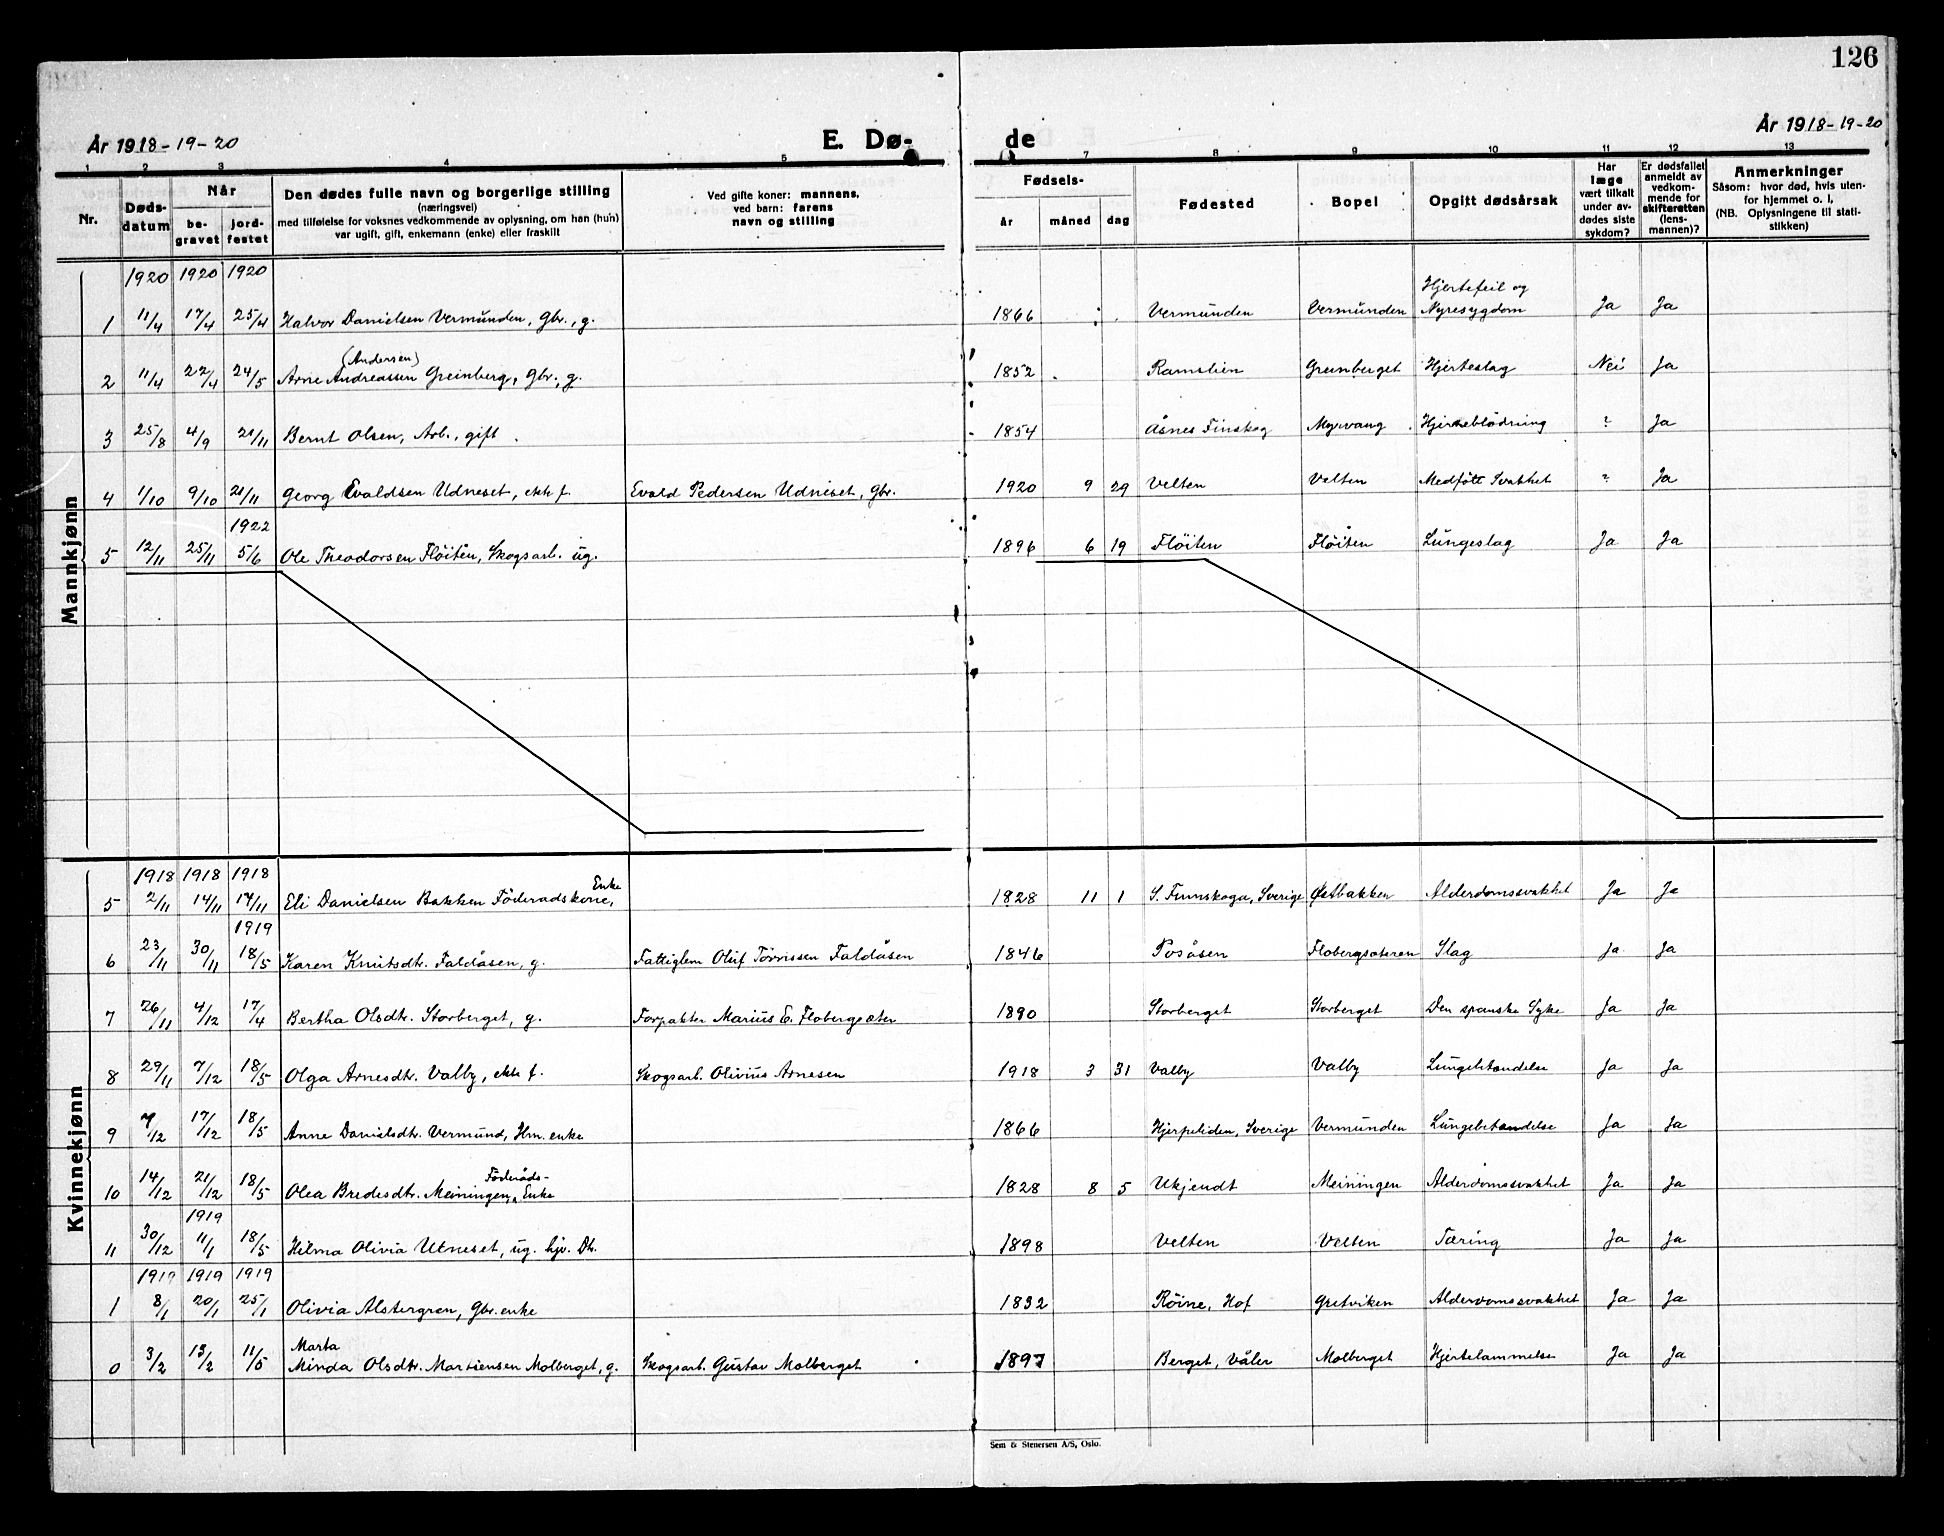 126
År 1918-19-20 E. Dø- de År 1918-19-20
1 2 3 4 5 7 8 9 10 11 12 13
Nr. Døds-datum Når be-gravet jord-festet Den dødes fulle navn og borgerlige stilling (næringsvei) med tilføielse for voksnes vedkommende av oplysning, om han (hun) var ugift, gift, enkemann (enke) eller fraskilt Ved gifte koner: mannens, ved barn: farens navn og stilling Fødsels- år måned dag Fødested Bopel Opgitt dødsårsak Har læge vært tilkalt under av-dødes siste sykdom? Er dødsfallet anmeldt av vedkom-mende for skifteretten (lens-mannen)? Anmerkninger Såsom: hvor død, hvis uten-for hjemmet o. l, (NB. Oplysningene til stati-stikken)
Mannkjønn
1920 1920 1920
1 11/4 17/4 25/4 Halvor Danielsen Vermunden, Gbr., g. 1866 Vermunden Vermunden Hjertefeil og Nyresygdom Ja Ja
2 11/4 22/4 24/5 Arne Andreassen (Andersen) Greinberg, Gbr., g. 1852 Ramslien Greinberget Hjerteslag Nei Ja
3 25/8 4/9 21/11 Bernt Olsen, Arb., gift 1854 Åsnes Finskog Myrvang Hjerneblödning ? Ja
4 1/10 9/10 21/11 Georg Evaldsen Udneset, ekte f. Evald Pedersen Udneset, Gbr. 1920 9 29 Velten Velten Medfött Svakhet ? Ja
1922
5 12/11 25/11 5/6 Ole Theodorsen Flöiten, Skogsarb. ug. 1896 6 19 Flöiten Flöiten Lungeslag Ja Ja
Kvinnekjønn
1918 1918 1918
5 2/11 14/11 14/11 Eli Danielsen Bakken Föderadskone, Enke 1828 11 1 S. Finnskoga, Sverige Östbakken Alderdomssvakhet Ja Ja
1919
6 23/11 30/11 18/5 Karen Knutsdtr. Faldåsen, g. Fattiglem Oluf Törrissen Faldåsen 1846 Posåsen Flobergsæteren Slag Ja Ja
7 26/11 4/12 17/4 Bertha Olsdtr. Storberget, g. Forpakter Marius E. Flobergsæter 1890 Storberget Storberget Den spanske Syke Ja Ja
8 29/11 7/12 18/5 Olga Arnesdtr. Valby, ekte f. Skogsarb. Olivius Arnesen 1918 3 31 Valby Valby Lungebetændelse Ja Ja
9 7/12 17/12 18/5 Anne Danielsdtr. Vermund, Hm. enke 1866 Hjerpeliden, Sverige Vermunden Lungebetændelse Ja Ja
10 14/12 21/12 18/5 Olea Bredesdtr. Meiningen, Föderåds-Enke 1828 8 5 Ukjendt Meiningen Alderdomssvakhet Ja Ja
1919
11 30/12 11/1 18/5 Hilma Olivia Utneset, ug. hjv. Dt. 1898 Velten Velten Tæring Ja Ja
1919 1919 1919
1 8/1 20/1 25/1 Olivia Alstergren, Gbr. enke 1832 Röine, Hof Gretviken Alderdomssvakhet Ja Ja
0 3/2 13/2 11/5 Marta Minda Olsdtr. Martiensen Molberget, g. Skogsarb. Gustav Molberget 1897 Berget, Våler Molberget Hjertelammelse Ja Ja
Sem & Stenersen A/S, Oslo.